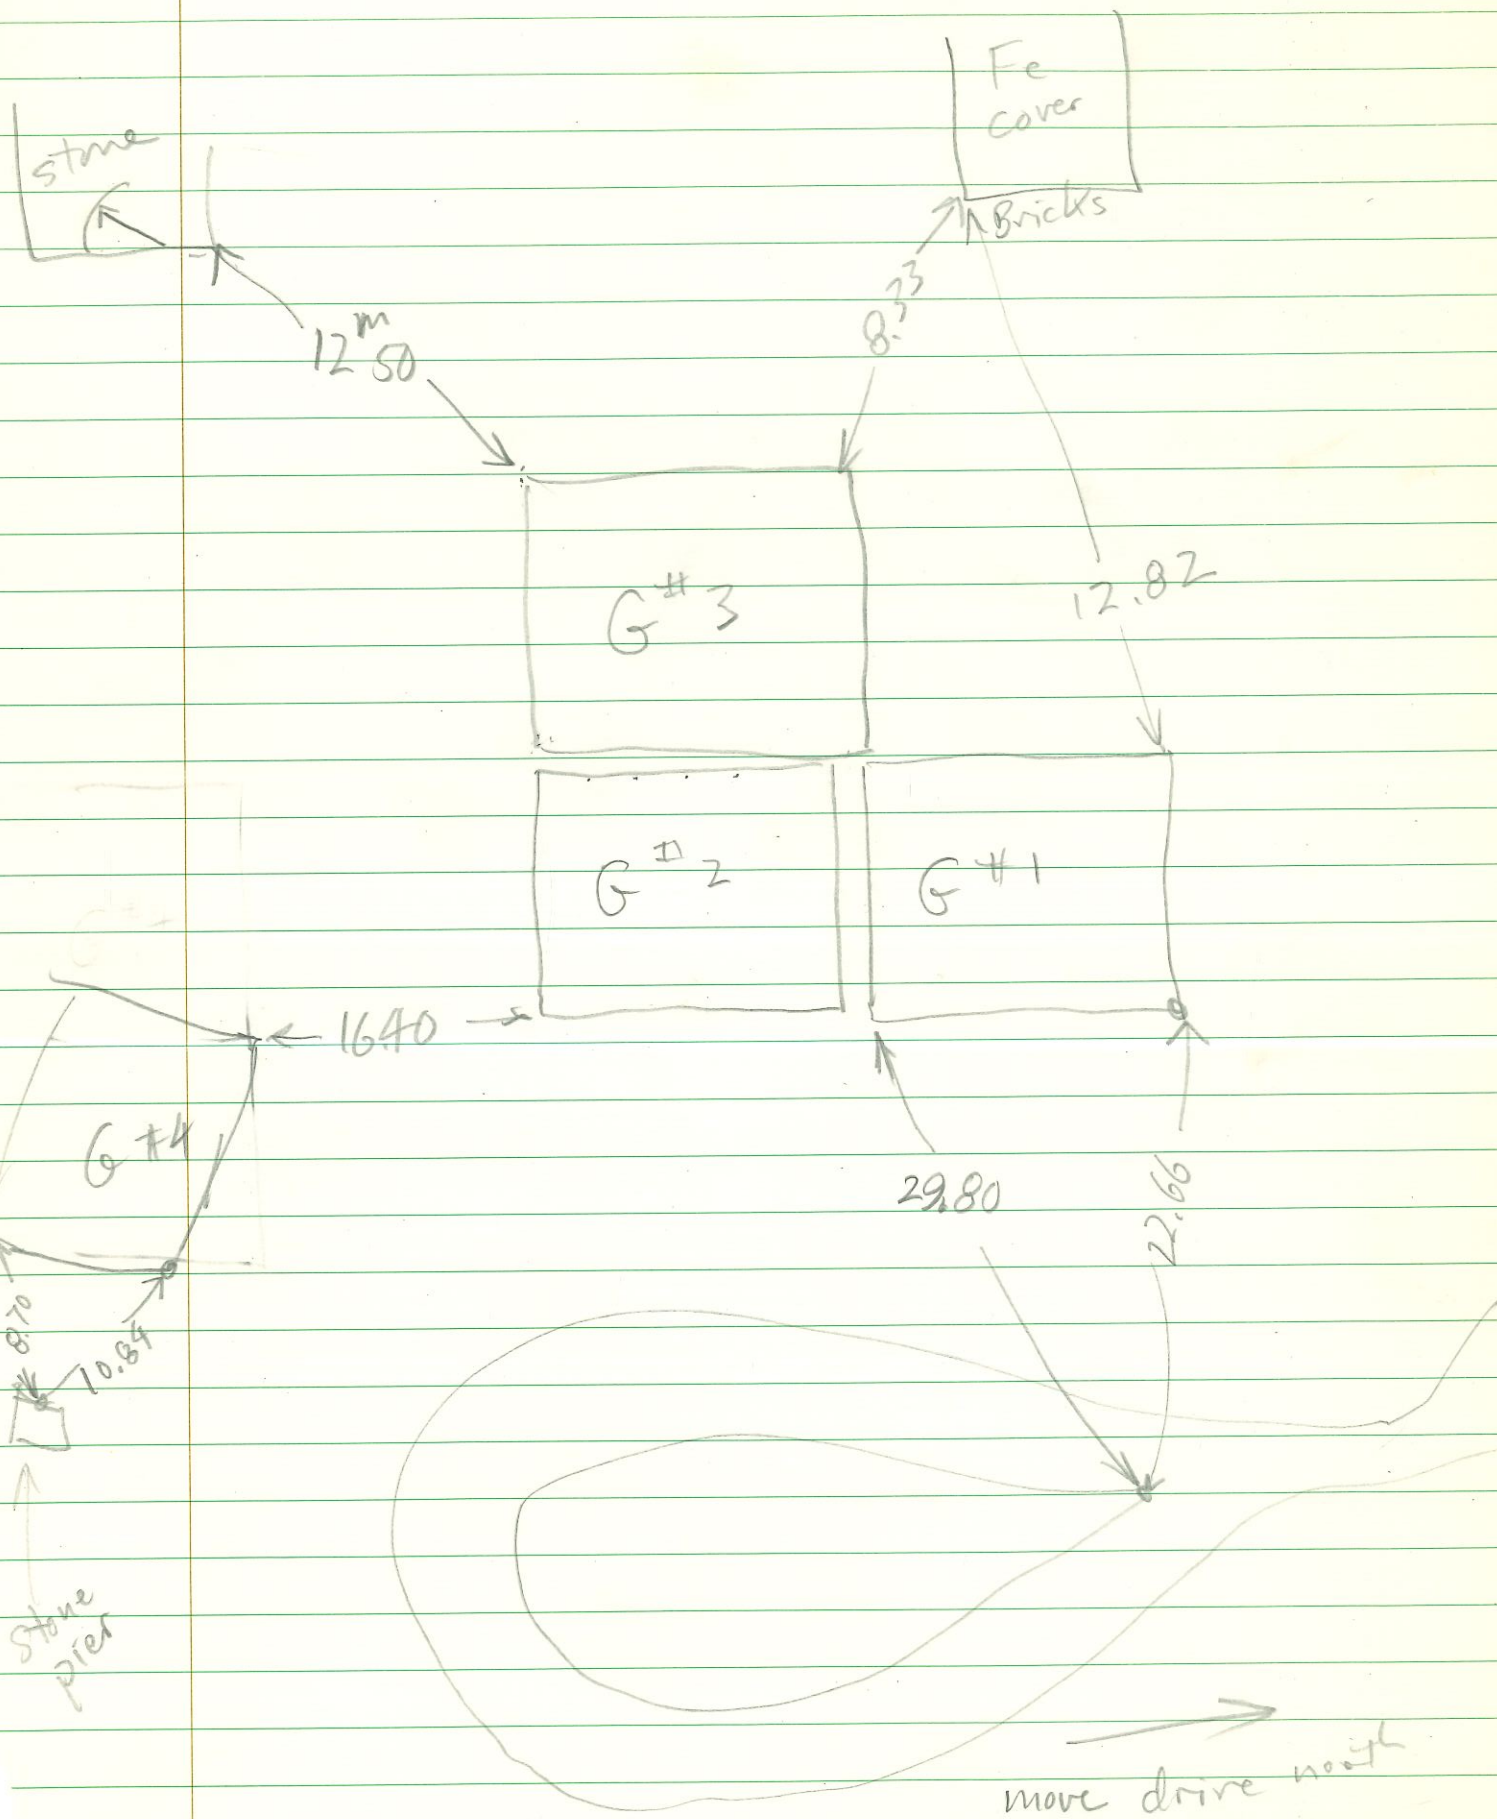 Fe
cover
stone
Bricks
12 m 50
8.33
12.82
G #3
G # 2
G #1
16.40
G #4
29.80
22.66
8.70
10.84
stone
pier
move drive north